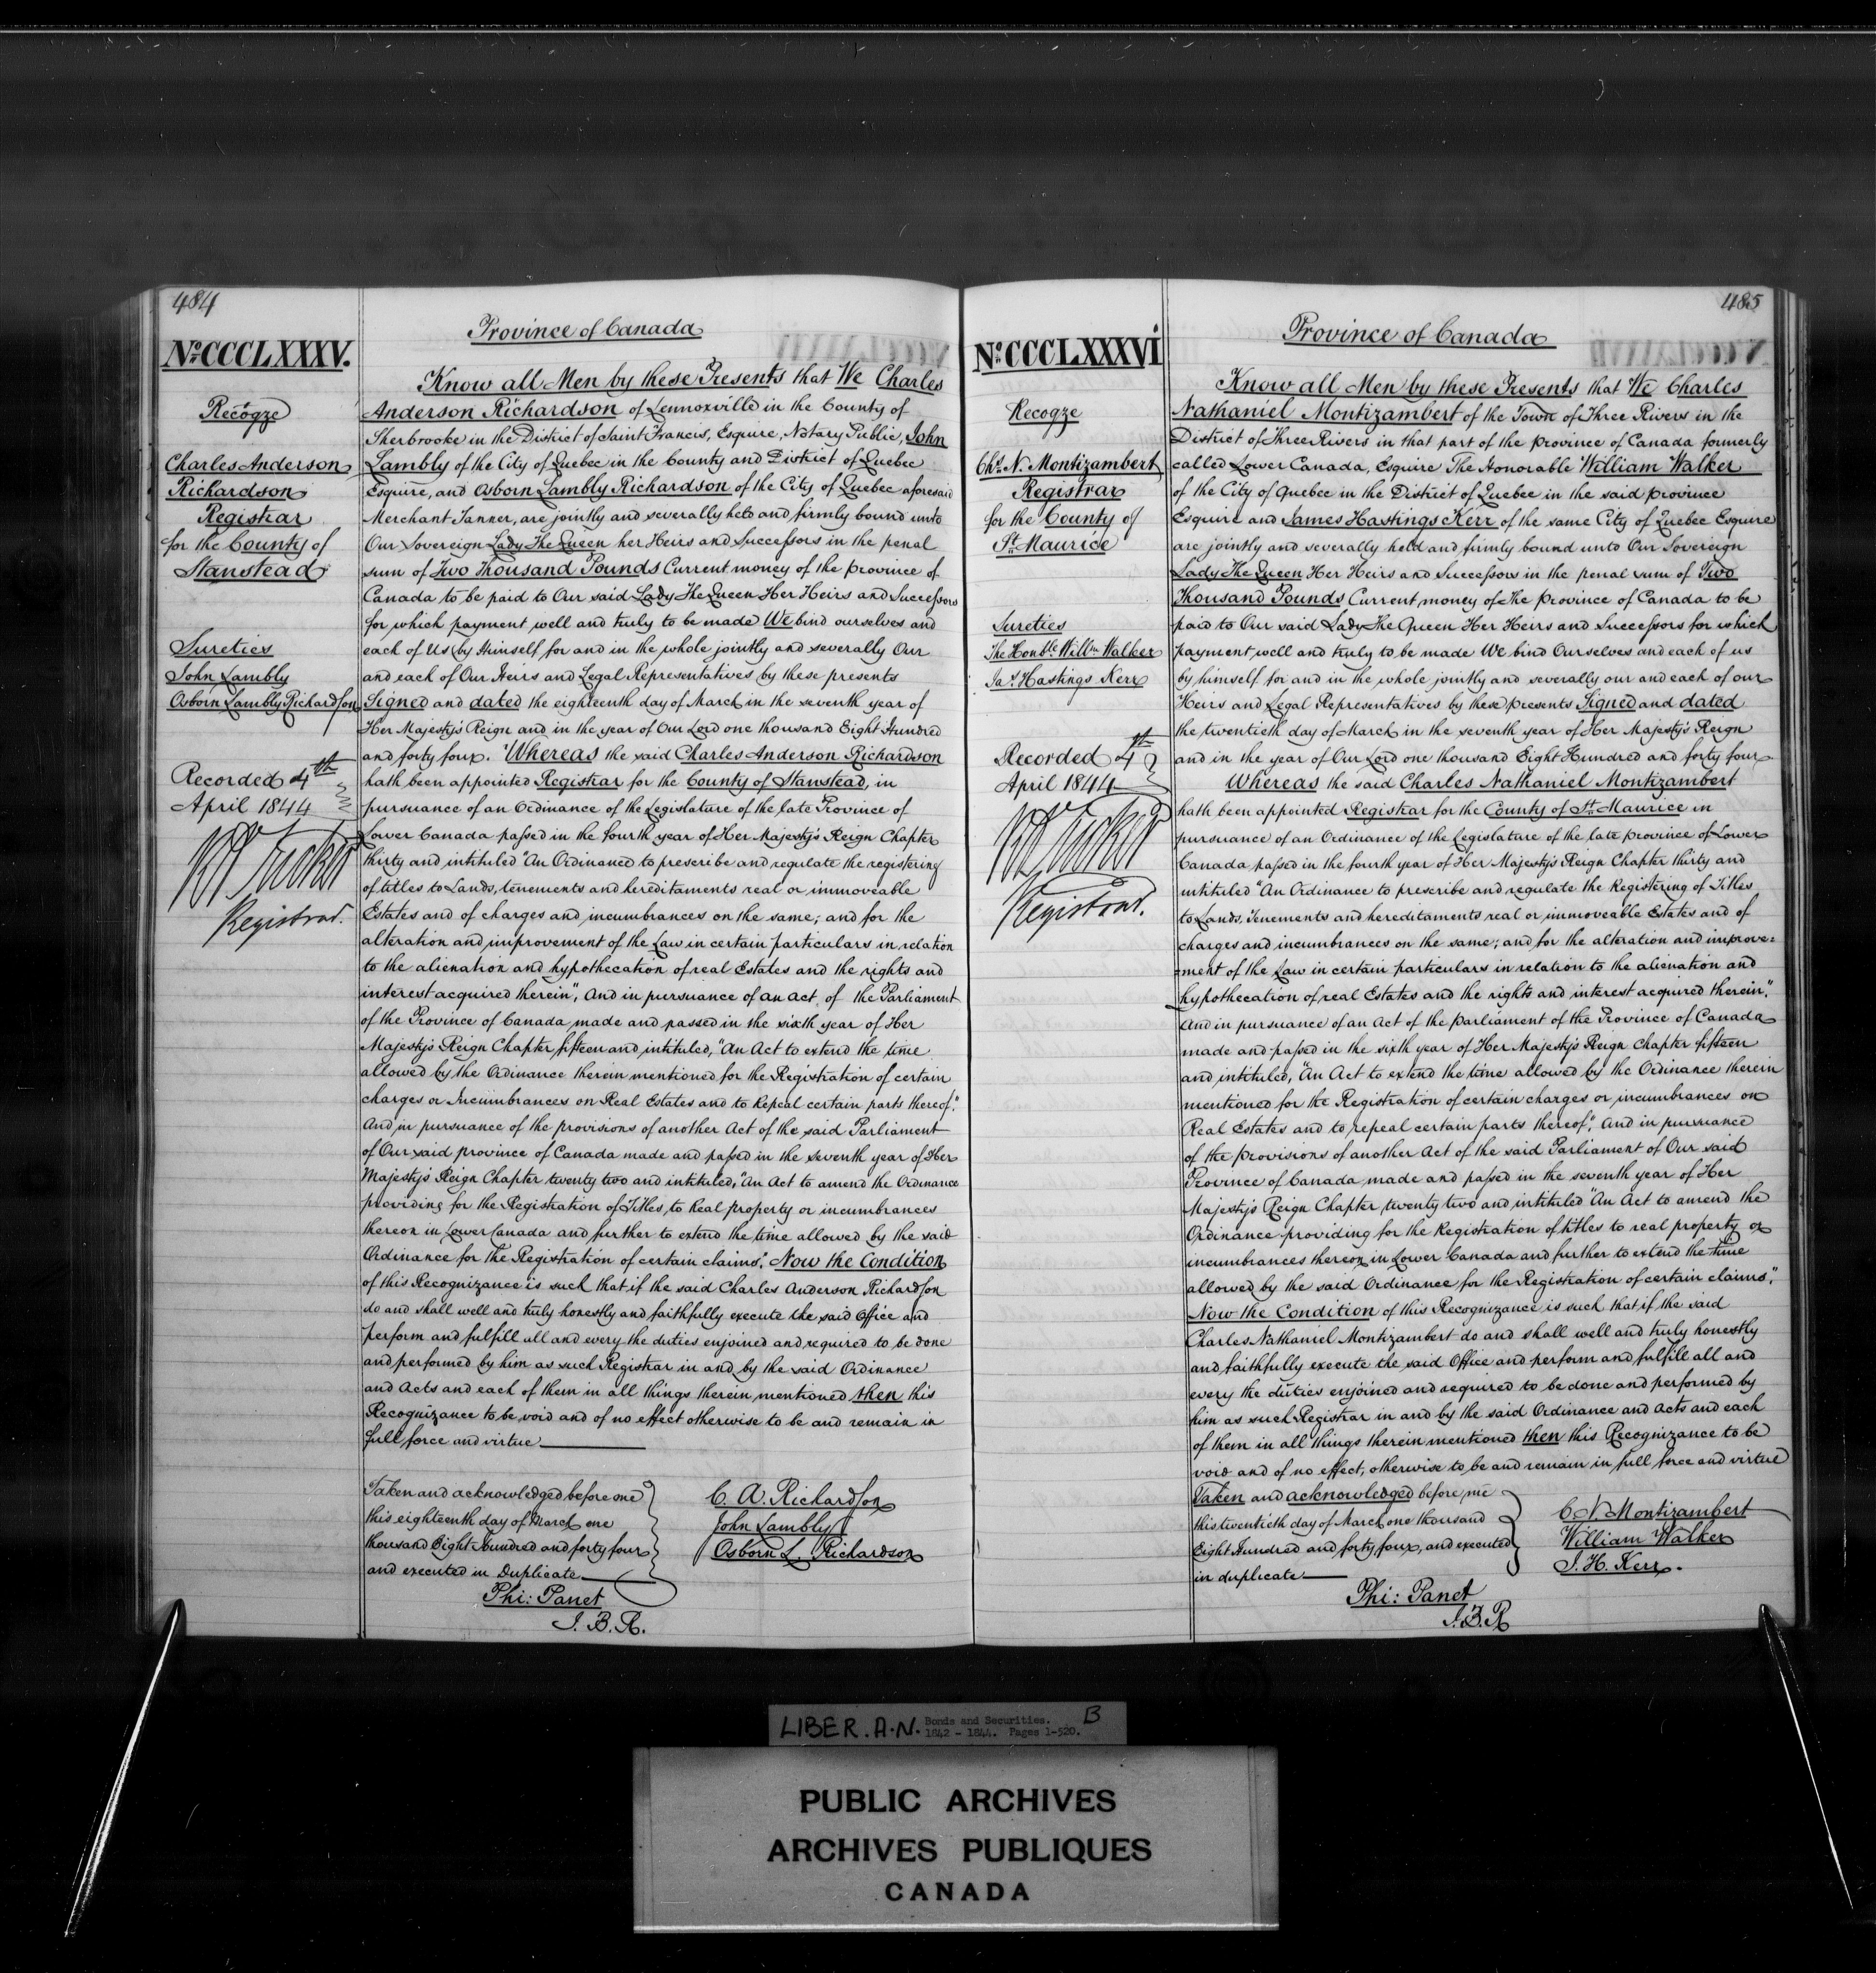 484
Province of Canada
No. CCCLXXXV.
Recogze
Charles Anderson
Richardson
Registrar
for the County of
Stanstead
Sureties
John Lambly
Osborn Lambly Richardson
Recorded 4th
April 1844
R A Tucker
Registrar.
Know all Men by these Presents that We Charles
Anderson Richardson of Lennoxville in the County of
Sherbrooke in the District of Saint Francis, Esquire, Notary Public, John
Lambly of the City of Quebec in the County and District of Quebec
Esquire, and Osborn Lambly Richardson of the City of Quebec aforesaid
Merchant Tanner, are jointly and severally held and firmly bound unto
Our Sovereign Lady The Queen her Heirs and Successors in the penal
sum of Two Thousand Pounds Current money of the province of
Canada to be paid to Our said Lady The Queen Her Heirs and Successors
for which payment well and truly to be made We bind ourselves and
each of Us by Himself for and in the whole jointly and severally Our
and each of Our Heirs and Legal Representatives by these presents
Signed and dated the eighteenth day of March in the seventh year of
Her Majesty's Reign and in the year of Our Lord one thousand Eight Hundred
and forty four. Whereas the said Charles Anderson Richardson
hath been appointed Registrar for the County of Stanstead, in
pursuance of an Ordinance of the Legislature of the late Province of
Lower Canada passed in the fourth year of Her Majesty's Reign Chapter
thirty and intituled "An Ordinance to prescribe and regulate the registering
of titles to Lands, tenements and hereditaments real or immoveable
Estates and of charges and incumbrances on the same; and for the
alteration and improvement of the Law in certain particulars in relation
to the alienation and hypothecation of real Estates and the rights and
interest acquired therein", And in pursuance of an act, of the Parliament
of the Province of Canada made and passed in the sixth year of Her
Majesty's Reign Chapter fifteen and intituled, "An Act to extend the time
allowed by the Ordinance therein mentioned for the Registration of certain
charges or Incumbrances on Real Estates and to Repeal certain parts thereof,"
And in pursuance of the provisions of another Act of the said Parliament
of Our said province of Canada made and passed in the seventh year of Her
Majesty's Reign Chapter twenty two and intituled, "An Act to amend the Ordinance
providing for the Registration of Titles, to Real property or incumbrances
thereon in Lower Canada and further to extend the time allowed by the said
Ordinance for the Registration of certain claims". Now the Condition
of this Recognizance is such that if the said Charles Anderson Richardson
do and shall well and truly honestly and faithfully execute the said Office and
perform and fulfill all and every the duties enjoined and required to be done
and performed by him as such Registrar in and by the said Ordinance
and Acts and each of them in all things therein mentioned then this
Recognizance to be void and of no effect otherwise to be and remain in
full force and virtue
Taken and acknowledged before me
this eighteenth day of March one
thousand Eight Hundred and forty four
and executed in Duplicate
C. A. Richardson
John Lambly
Osborn L. Richardson
Phi: Panet
J. B. R.
485
Province of Canada
No. CCCLXXXVI
Recogze
Chs. N. Montizambert
Registrar
for the County of
St. Maurice
Sureties
The Honble. Willm. Walker
Jas. Hastings Kerr
Recorded 4th
April 1844
R A Tucker
Registrar.
Know all Men by these Presents that We Charles
Nathaniel Montizambert of the Town of Three Rivers in the
District of Three Rivers in that part of the province of Canada formerly
called Lower Canada, Esquire The Honorable William Walker
of the City of Quebec in the District of Quebec in the said province
Esquire and James Hastings Kerr of the same City of Quebec Esquire
are jointly and severally held and firmly bound unto Our Sovereign
Lady The Queen Her Heirs and Successors in the penal sum of Two
Thousand Pounds Current money of the province of Canada to be
paid to Our said Lady the Queen Her Heirs and Successors for which
payment well and truly to be made We bind Ourselves and each of us
by himself for and in the whole jointly and severally our and each of our
Heirs and Legal Representatives by these presents Signed and dated
the twentieth day of March in the seventh year of Her Majesty's Reign
and in the year of Our Lord one thousand Eight Hundred and forty four
Whereas the said Charles Nathaniel Montizambert
hath been appointed Registrar for the County of St. Maurice in
pursuance of an Ordinance of the legislature of the late province of Lower
Canada passed in the fourth year of Her Majesty's Reign Chapter thirty and
intituled "An Ordinance to prescribe and regulate the Registering of Titles
to Lands, Tenements and hereditaments real or immoveable Estates and of
charges and incumbrances on the same; and for the alteration and improve=
=ment of the Law in certain particulars in relation to the alienation and
hypothecation of real Estates and the rights and interest acquired therein",
And in pursuance of an Act of the parliament of the Province of Canada
made and passed in the sixth year of Her Majesty's Reign Chapter fifteen
and intituled, "An Act to extend the time allowed by the Ordinance therein
mentioned for the Registration of certain charges or incumbrances on
Real Estates and to repeal certain parts thereof", And in pursuance
of the provisions of another Act of the said Parliament of Our said
Province of Canada made and passed in the seventh year of Her
Majesty's Reign Chapter twenty two and intituled "An Act to amend the
Ordinance providing for the Registration of titles to real property or
incumbrances thereon in Lower Canada and further to extend the time
allowed by the said Ordinance for the Registration of certain claims",
Now the Condition of this Recognizance is such that if the said
Charles Nathaniel Montizambert do and shall well and truly honestly
and faithfully execute the said Office and perform and fulfill all and
every the duties enjoined and required to be done and performed by
him as such Registrar in and by the said Ordinance and Acts and each
of them in all things therein mentioned then this Recognizance to be
void and of no effect, otherwise to be and remain in full force and virtue
Taken and acknowledged before me
this twentieth day of March one thousand
Eight Hundred and forty four, and executed
in duplicate
C. N. Montizambert
William Walker
J. H. Kerr.
Phi: Panet
J. B. R
LIBER. A.N. Bonds and Securities. B
1842 - 1844. Pages 1-520.
PUBLIC ARCHIVES
ARCHIVES PUBLIQUES
CANADA